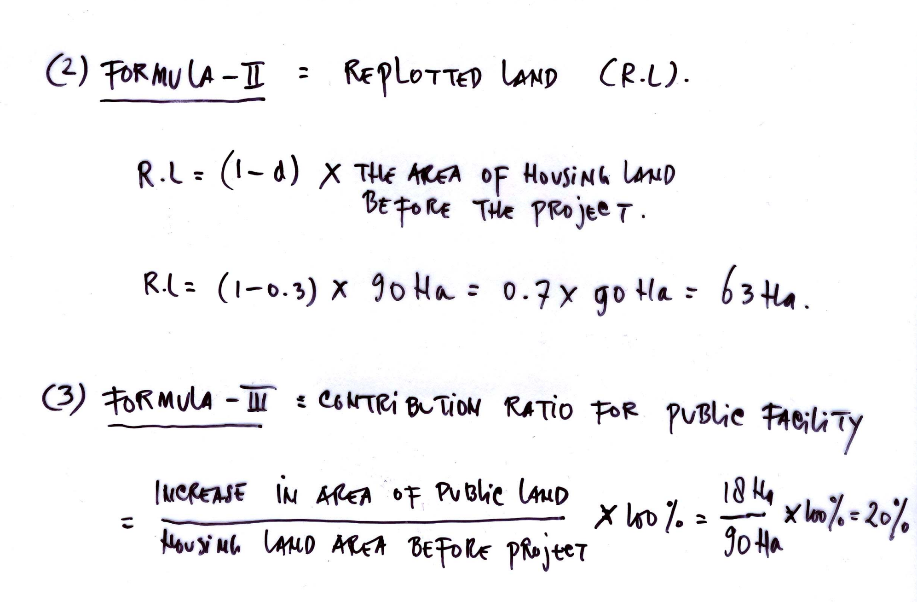 (2) FORMULA - II = REPLOTTED LAND (R.L).
R.L = (1-d) X THE AREA OF HOUSING LAND
BEFORE THE PROJECT.
R.L = (1-0.3) X 90 Ha = 0.7 X 90 Ha = 63 Ha.
(3) FORMULA - III = CONTRIBUTION RATIO FOR PUBLIC FACILITY
= INCREASE IN AREA OF PUBLIC LAND / HOUSING LAND AREA BEFORE PROJECT X 100 % = 18 Ha / 90 Ha X 100% = 20%